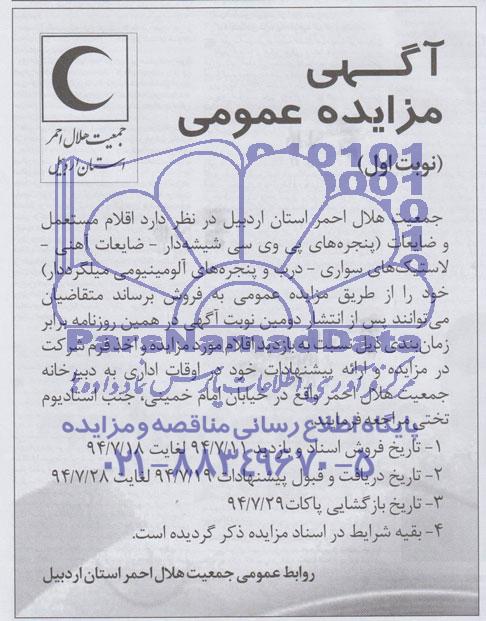 آگهی
مزایده عمومی
(نوبت اول)
جمعیت هلال احمر
استان اردبیل
جمعیت هلال احمر استان اردبیل در نظر دارد اقلام مستعمل
و ضایعات (پنجره‌های پی وی سی شیشه‌دار - ضایعات آهنی -
لاستیک‌های سواری - درب و پنجره‌های آلومینیومی میلگرددار)
خود را از طریق مزایده عمومی به فروش برساند متقاضیان
می‌توانند پس از انتشار دومین نوبت آگهی در همین روزنامه برابر
زمان‌بندی ذیل نسبت به بازدید اقلام مورد مزایده و اخذ فرم شرکت
در مزایده و ارائه پیشنهادات خود در اوقات اداری به دبیرخانه
جمعیت هلال احمر واقع در خیابان امام خمینی، جنب استادیوم
تختی مراجعه فرمایند.
۱- تاریخ فروش اسناد و بازدید ۹۴/۷/۱۱ لغایت ۹۴/۷/۱۸
۲- تاریخ دریافت و قبول پیشنهادات ۹۴/۷/۱۹ لغایت ۹۴/۷/۲۸
۳- تاریخ بازگشایی پاکات ۹۴/۷/۲۹
۴- بقیه شرایط در اسناد مزایده ذکر گردیده است.
روابط عمومی جمعیت هلال احمر استان اردبیل
ParsNamadData
مرکز فرآوری اطلاعات پارس نماد داده‌ها
پایگاه اطلاع رسانی مناقصه و مزایده
۰۲۱-۸۸۳۴۹۶۷۰-۵